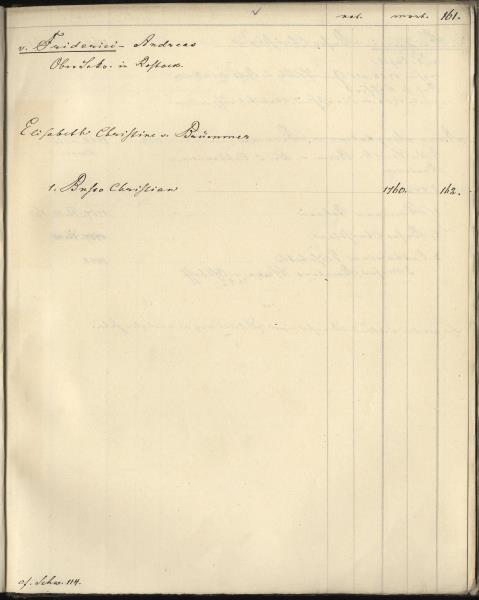 nat. mort. 161.
v. Friderici - Andreas
Oberstlt. in Rostock.
Elisabeth Christine v. Brümmer
1. Busso Christian 1760. 162.
cf. Schw. 114.